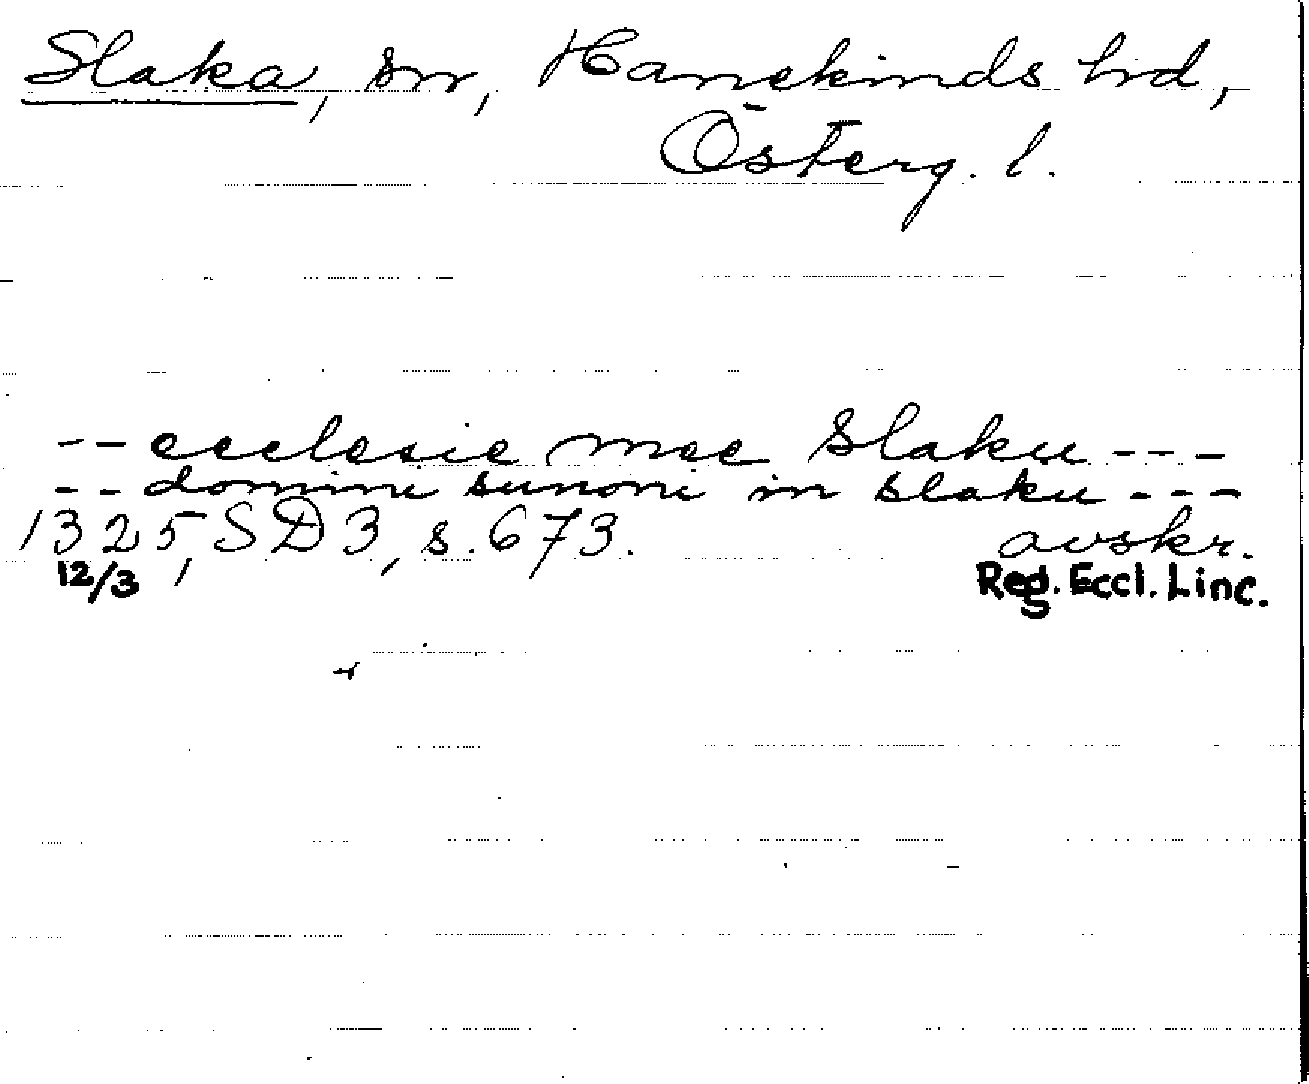 Slaka, sn, Hanekinds hd,
Österg. l.
-- ecclesie mee Slaku ---
-- domini sunoni in slaku ---
1325, SD 3, s. 673. avskr.
12/3 Reg. Eccl. Linc.